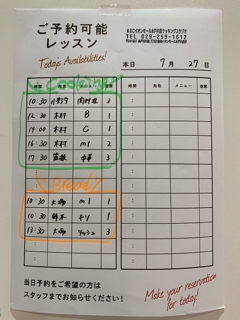 ご予約可能
レッスン
Today's Availabilities!
ABCイオンモール水戸内原クッキングスタジオ
TEL 029-259-1612
本日 7月 27日
時間 先生 メニュー 空席
Cooking
10:30 2
12:30 木村 B 1
14:00 木村 C 1
16:30 木村 m1 2
17:30 中華 3
Bread
10:30 大塚 m1 1
10:30 鈴木 1
13:30 大塚 3
当日予約をご希望の方は
スタッフまでお知らせください!
Make your reservation
for today!